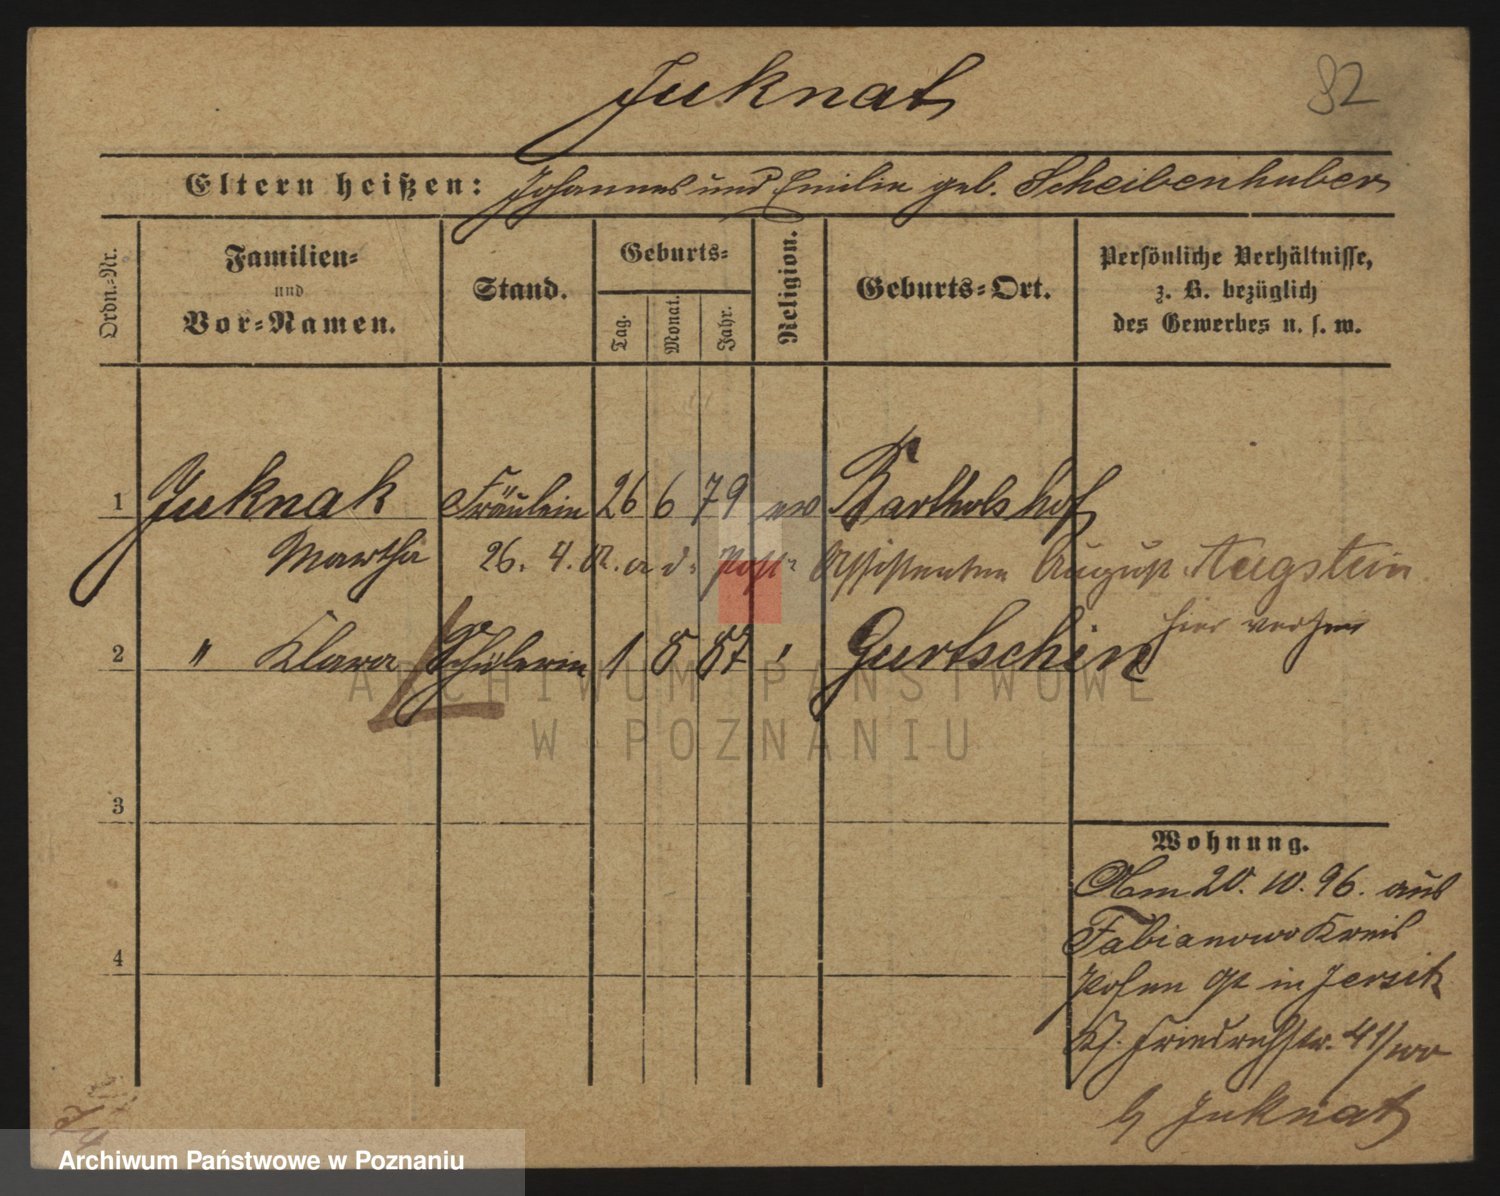 Juknat
82
Eltern heißen: Johannes und Emilie geb. Scheibenhuber
Ordn.-Nr.
Familien-
und
Vor-Namen.
Stand.
Geburts-
Tag.
Monat.
Jahr.
Religion.
Geburts-Ort.
Persönliche Verhältnisse,
z. B. bezüglich
des Gewerbes u. s. w.
1 Juknat Fräulein 26 6 79 ev Bartholshof
Martha 26. 4. a d. Post Assistenten August Augstein
hier
2 " Klara Schülerin 1 8 87 " Gurtschin
3
4
Wohnung.
Am 20. 10. 96. aus
Fabianowo Kreis
Posen in Jersitz
Friedrichstr. 41/
b Juknat
ARCHIWUM PAŃSTWOWE
W POZNANIU
Archiwum Państwowe w Poznaniu